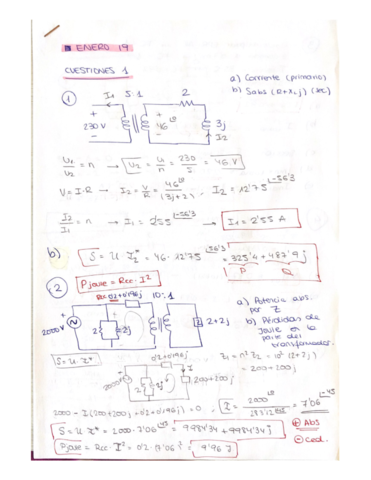 ENERO 19
CUESTIONES 1
a) Corriente (primario)
b) Sabs (R+X_L j) (sec)
1
I1 5:1 2
+
230 V
-
46 |0
3j
I2
U1/U2 = n → U2 = U/n = 230/5 = 46 V
V = I·R → I2 = V/R = 46 |0 / (3j+2) I2 = 12'75 |-56'3
I2/I1 = n → I1 = 2'55 |-56'3 → I1 = 2'55 A
b) S = U·I2* = 46 · 12'75 |56'3 = 325'4 + 487'9 j
P Q
2 Pjoule = Rcc · I²
Rcc 0'2+0'196j 10:1
2000 V
2
2j
2+2j
a) Potencia abs. por Z
b) Pérdidas de Joule en la parte del transformador.
S = U·I*
0'2+0'196j
Z1 = n² Z2 = 10² (2+2j) = 200+200j
200+200j
2000 - I(200+200j + 0'2+0'196j) = 0 , I = 2000 |0 / 283'12 |45 = 7'06 |-45
S = U·I* = 2000 · 7'06 |45 = 9984'34 + 9984'34 j
+ Abs
- Ced.
Pjoule = Rcc · I² = 0'2 · 7'06² = 9'96 J